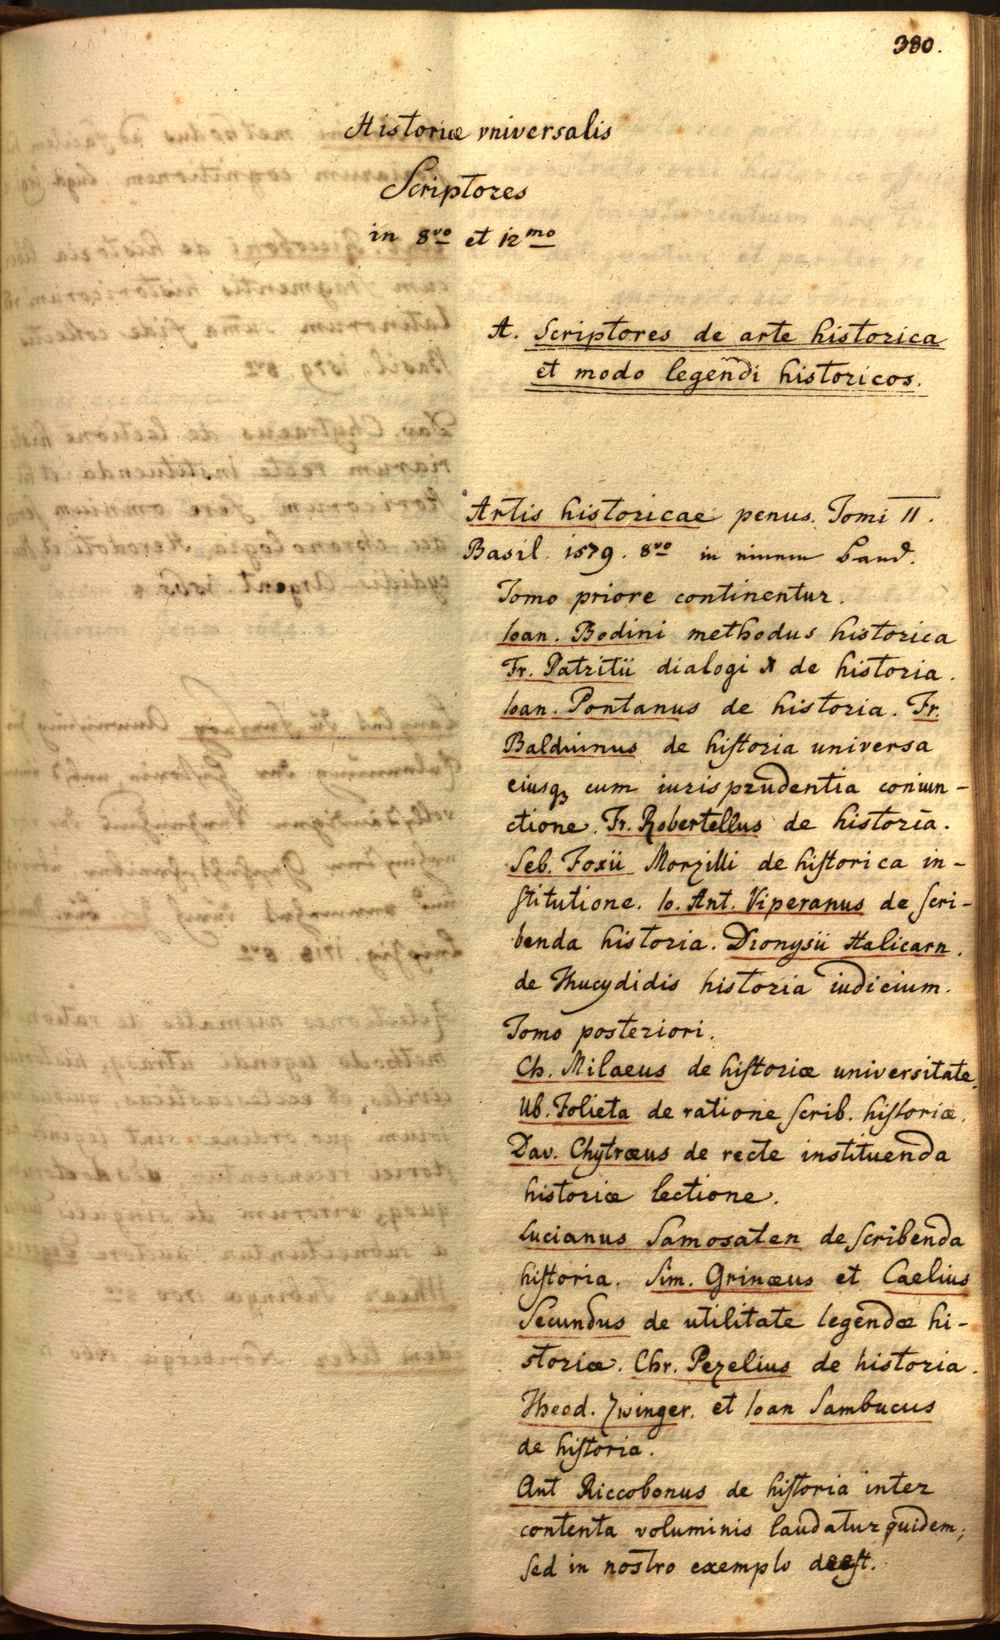 380.
Historiæ vniversalis
Scriptores
in 8vo et 12mo
A. Scriptores de arte historica
et modo legendi historicos.
Artis historicae penus. Tomi II.
Basil. 1579. 8vo in einem Band.
Tomo priore continentur.
Ioan. Bodini methodus historica
Fr. Patritii dialogi X de historia.
Ioan. Pontanus de historia. Fr.
Balduinus de historia universa
eiusq; cum iurisprudentia coniun-
ctione. Fr. Robertellus de historia.
Seb. Foxii Morzilli de historica in-
stitutione. Io. Ant. Viperanus de scri-
benda historia. Dionysii Halicarn.
de Thucydidis historia iudicium.
Tomo posteriori.
Ch. Milaeus de historiæ universitate.
Ub. Folieta de ratione scrib. historiæ.
Dav. Chytræus de recte instituenda
historiæ lectione.
Lucianus Samosaten de scribenda
historia. Sim. Grinæus et Caelius
Secundus de utilitate legendæ hi-
storiæ. Chr. Pezelius de historia.
Theod. Zwinger. et Ioan Sambucus
de historia.
Ant Riccobonus de historia inter
contenta voluminis laudatur quidem,
sed in nostro exemplo deest.